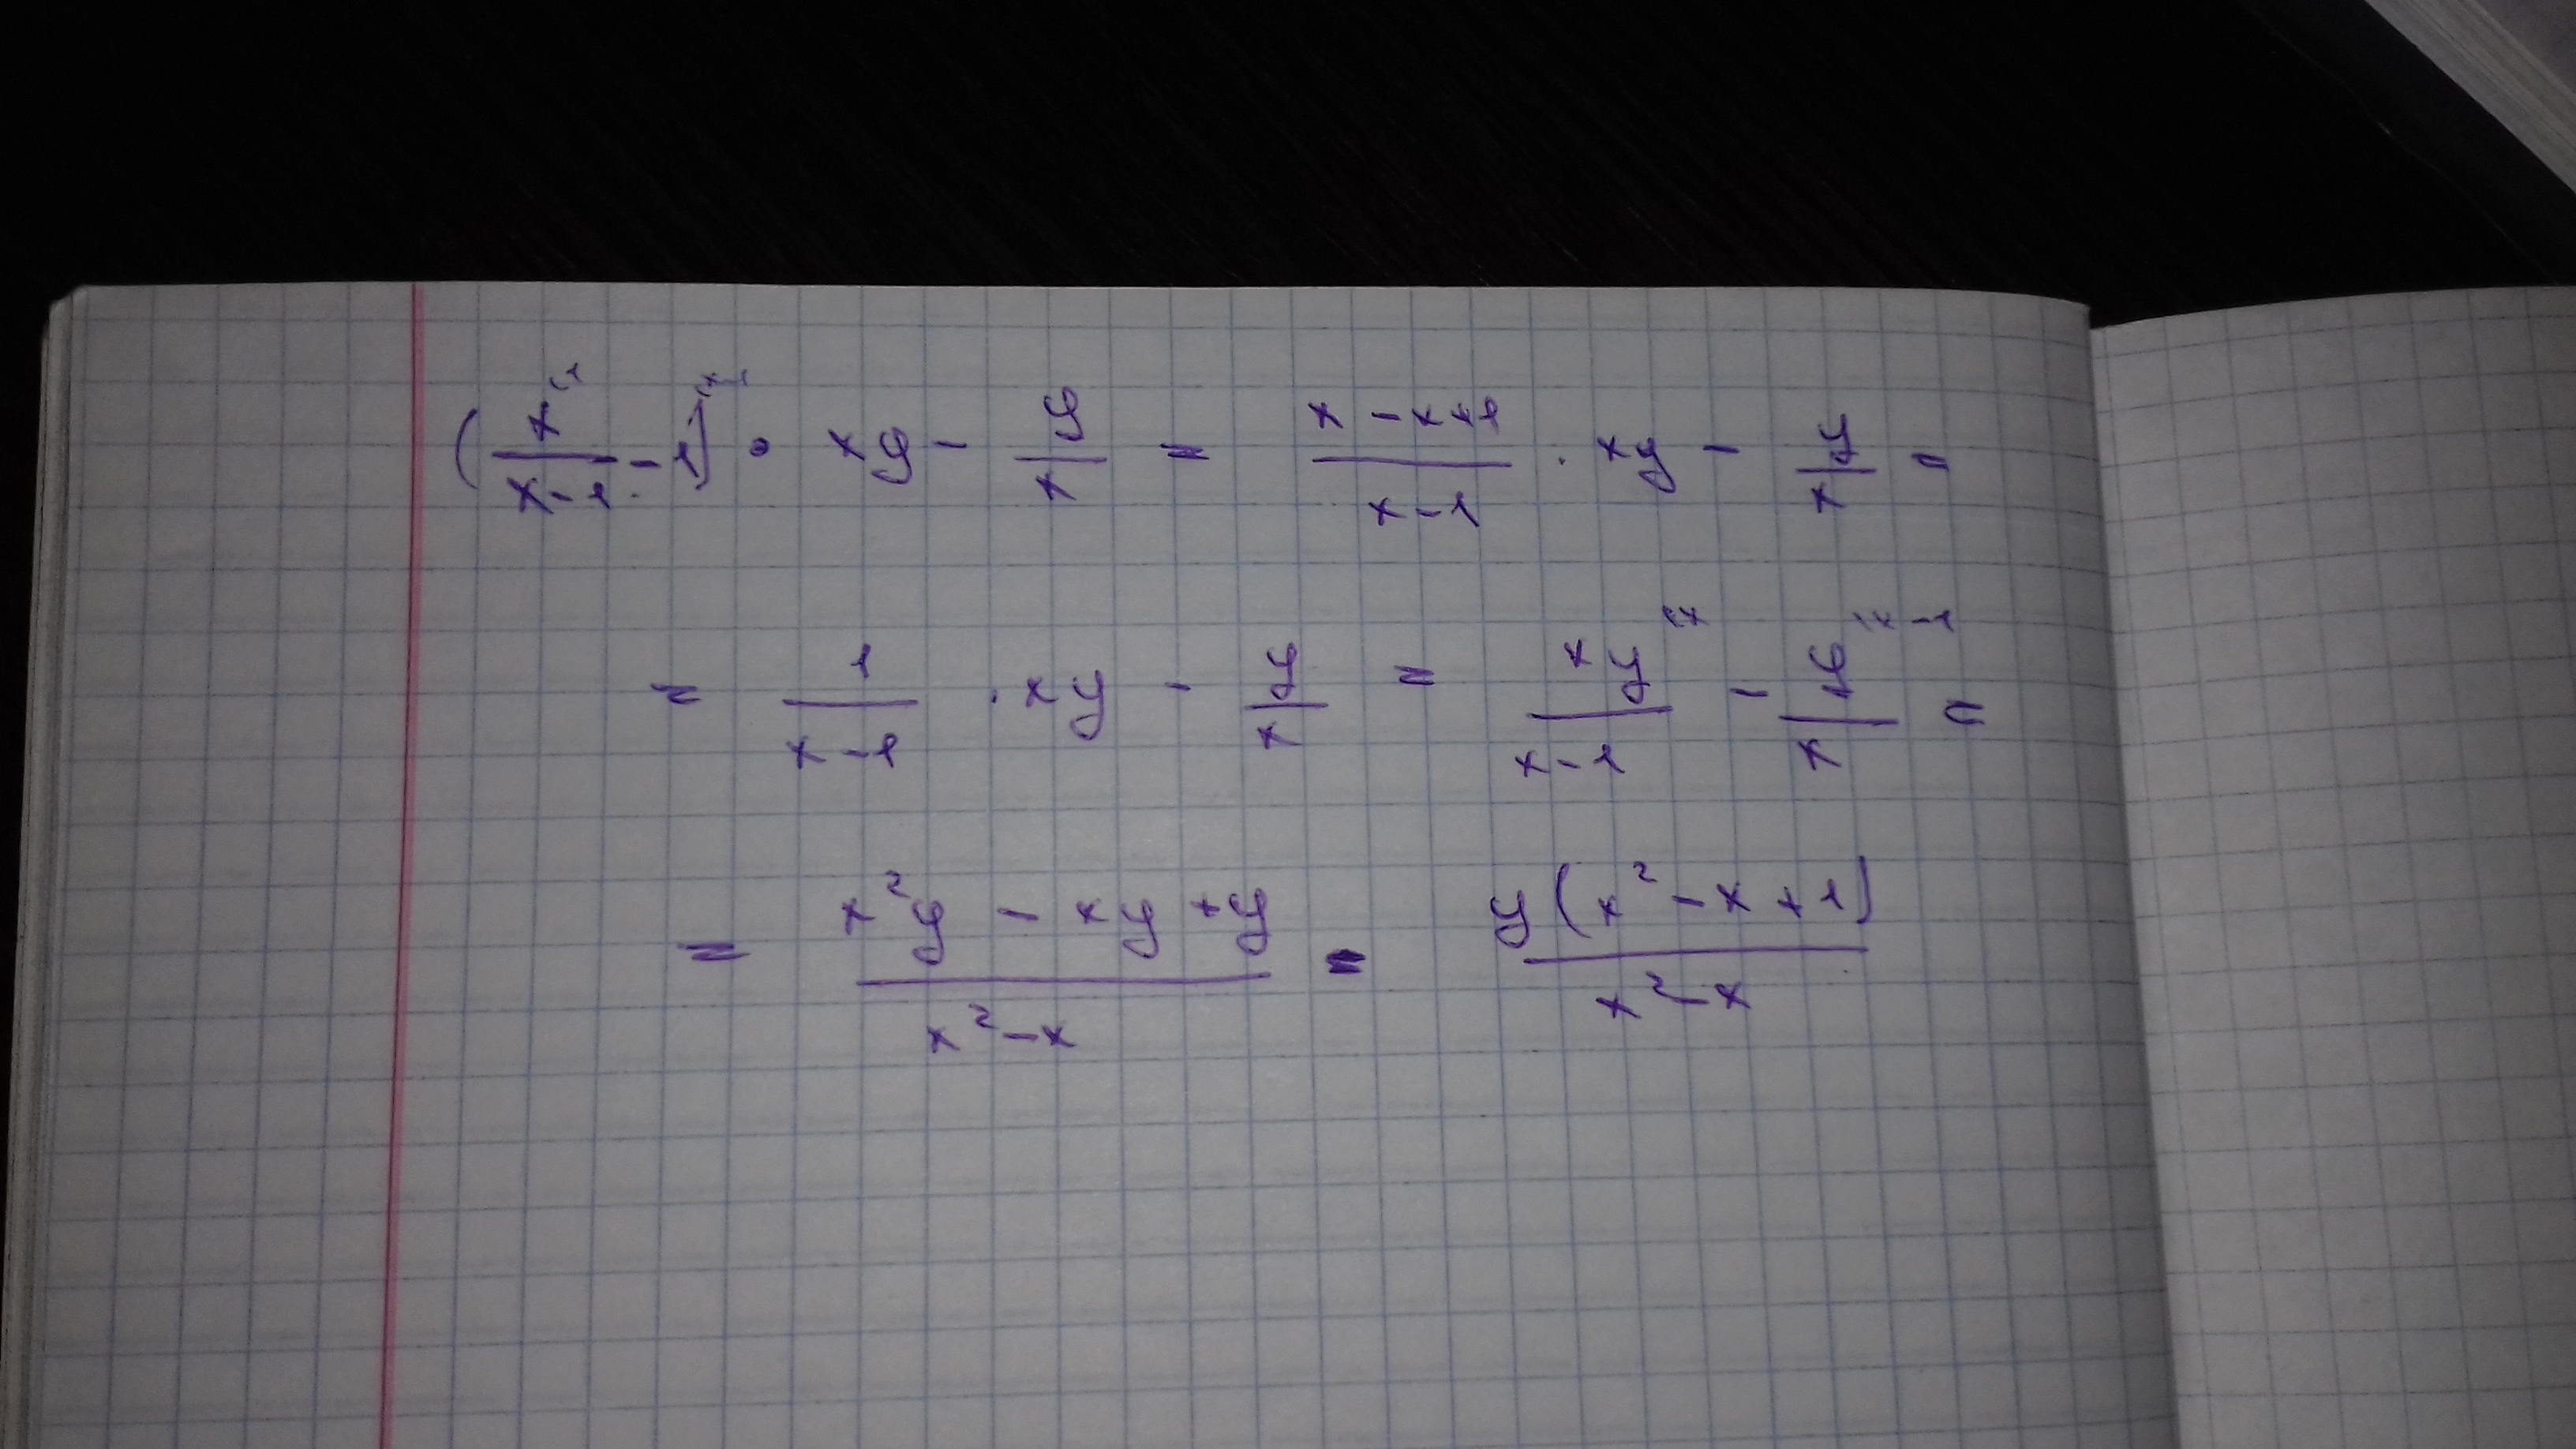 (x/(x-1) - 1) · xy - y/x = (x - x + 1)/(x - 1) · xy - y/x =
= 1/(x - 1) · xy - y/x = xy/(x - 1) - y/x =
= (x²y - xy + y)/(x² - x) = y(x² - x + 1)/(x² - x)